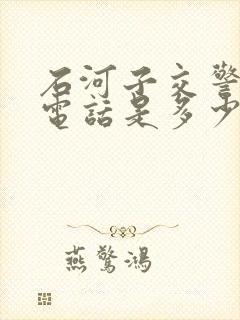 石河子交警
電話是多少
燕驚鴻